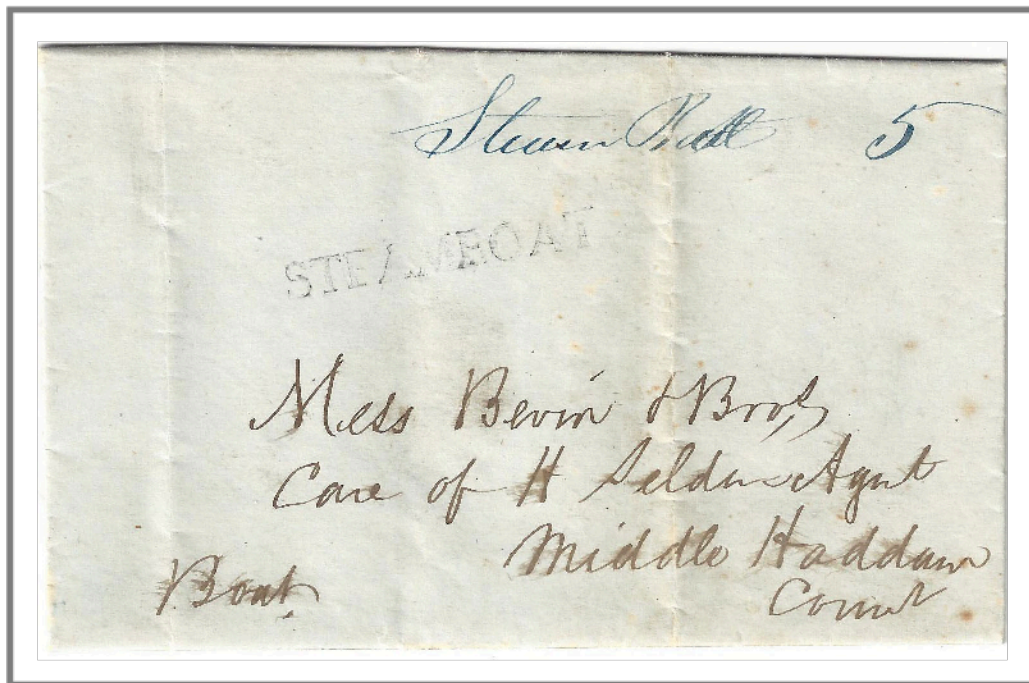 Steam Boat 5
STEAMBOAT
Mess Bevin & Bros
Care of H Selden Agent
Middle Haddam
Boat. Connt